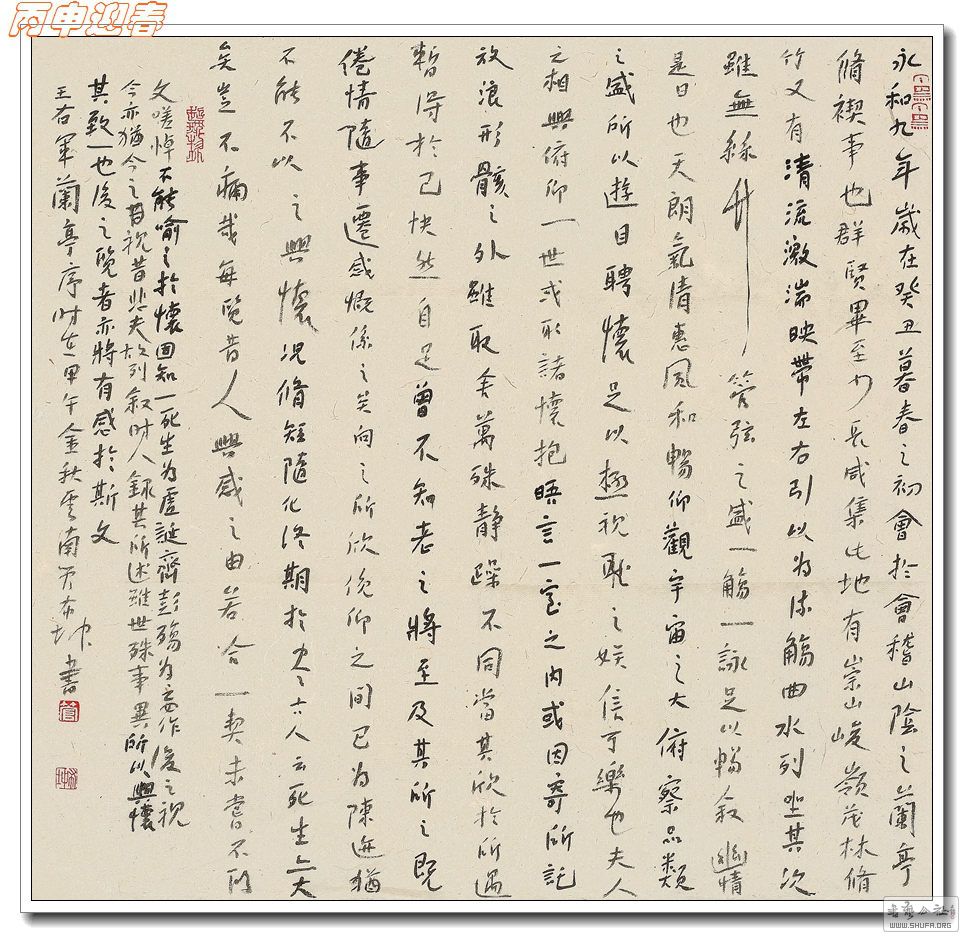 丙申迎春
永和九年歲在癸丑暮春之初會於會稽山陰之蘭亭
脩禊事也群賢畢至少長咸集此地有崇山峻嶺茂林脩
竹又有清流激湍映帶左右引以為流觴曲水列坐其次
雖無絲竹管弦之盛一觴一詠足以暢敘幽情
是日也天朗氣清惠風和暢仰觀宇宙之大俯察品類
之盛所以遊目聘懷足以極視聽之娛信可樂也夫人
之相與俯仰一世或取諸懷抱晤言一室之内或因寄所託
放浪形骸之外雖取舍萬殊静躁不同當其欣於所遇
暫得於己快然自足曾不知老之將至及其所之既
倦情隨事遷感慨係之矣向之所欣俛仰之間已為陳迹猶
不能不以之興懷况脩短隨化終期於盡古人云死生亦大
矣豈不痛哉每覽昔人興感之由若合一契未嘗不臨
文嗟悼不能喻之於懷固知一死生為虛誕齊彭殤為妄作後之視
今亦猶今之視昔悲夫故列敘時人錄其所述雖世殊事異所以興懷
其致一也後之覽者亦將有感於斯文
王右軍蘭亭序時在甲午金秋雲南布坤書
書藝公社
WWW.SHUFA.ORG